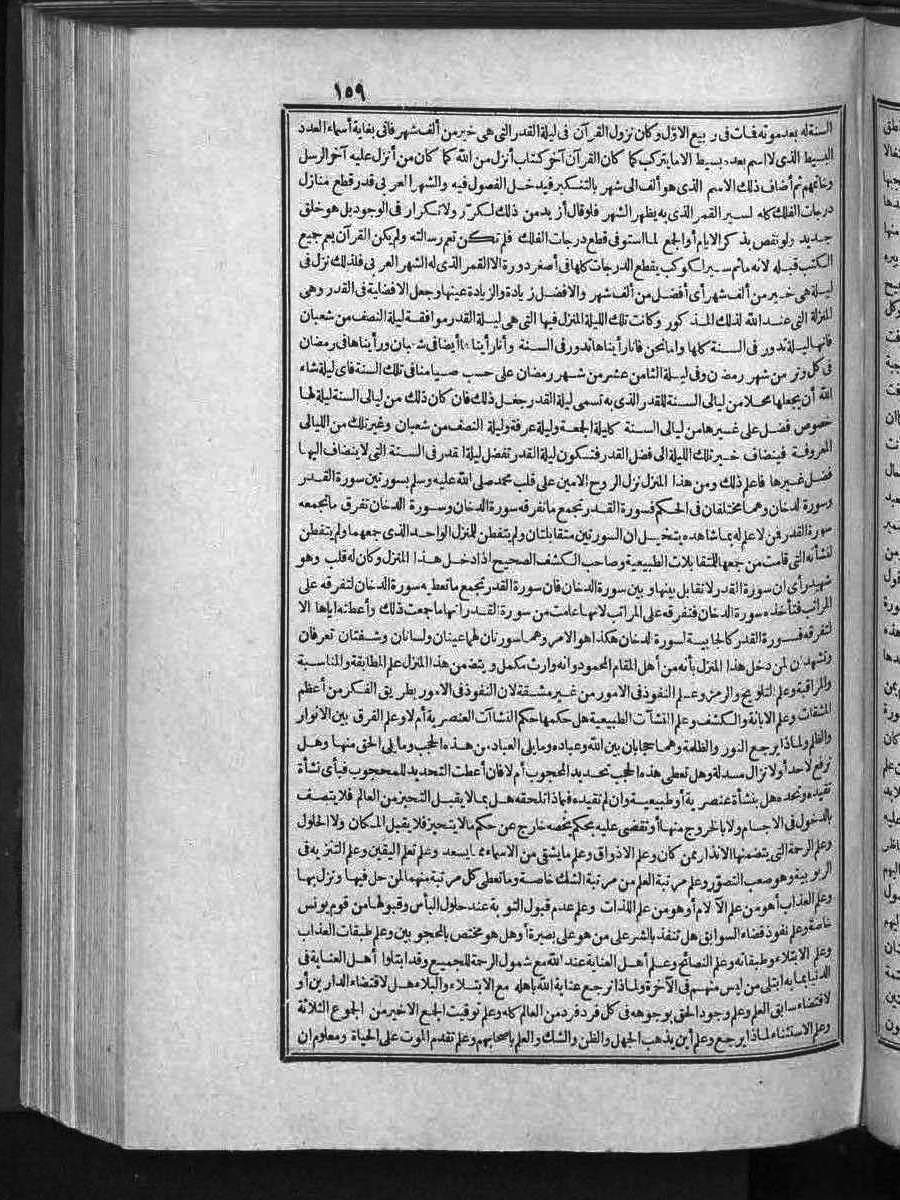 ١٥٩
السنة له بعد موته فمات فى ربيع الاوّل وكان نزول القرآن فى ليلة القدر التى هى خير من ألف شهر فاتى بغاية أسماء العدد
البسيط الذى لا اسم بعده بسيط الا ما يتركب كما كان القرآن آخر كتاب أنزل من الله كما كان من أنزل عليه آخر الرسل
وخاتمهم ثم أضاف ذلك الاسم الذى هو ألف الى شهر بالتنكير فيدخل الفصول فيه والشهر العربى قدر قطع منازل
درجات الفلك كله لسير القمر الذى به يظهر الشهر فلو قال أزيد من ذلك لكرّر ولا تكرار فى الوجود بل هو خلق
جديد ولو نقص بذكر الايام أو الجمع لما استوفى قطع درجات الفلك فلم تكن تعم رسالته ولم يكن القرآن يعم جميع
الكتب قبله لانه ما ثم سير لكوكب يقطع الدرجات كلها فى أصغر دورة الا القمر الذى له الشهر العربى فلذلك نزل فى
ليلة هى خير من ألف شهر أى أفضل من ألف شهر والافضل زيادة والزيادة عينها وجعل الافضلية فى القدر وهى
المنزلة التى عند الله لذلك المذكور وكانت تلك الليلة المنزل فيها التى هى ليلة القدر موافقة ليلة النصف من شعبان
فانها ليلة تدور فى السنة كلها وأما نحن فانا رأيناها تدور فى السنة وأنا رأيناها أيضا فى شعبان ورأيناها فى رمضان
فى كل وتر من شهر رمضان وفى ليلة الثامن عشر من شهر رمضان على حسب صيامنا فى تلك السنة فاى ليلة شاء
الله أن يجعلها محلا من ليالى السنة للقدر الذى به تسمى ليلة القدر جعل ذلك فان كان ذلك من ليالى السنة ليلة لها
خصوص فضل على غيرها من ليالى السنة كليلة الجمعة وليلة عرفة وليلة النصف من شعبان وغير تلك من الليالى
المعروفة فينضاف خير تلك الليلة الى فضل القدر فتكون ليلة القدر تفضل ليلة القدر فى السنة التى لا ينضاف اليها
فضل غيرها فاعلم ذلك ومن هذا المنزل نزل الروح الامين على قلب محمد صلى الله عليه وسلم بسورتين سورة القدر
وسورة الدخان وهما مختلفان فى الحكم فسورة القدر تجمع ما تفرقه سورة الدخان وسورة الدخان تفرق ما تجمعه
سورة القدر فمن لا علم له بما شاهده يتخيل ان السورتين متقابلتان ولم يتفطن للمنزل الواحد الذى جمعهما ولم يتفطن
لنشأته التى قامت من جمعها للمتقابلات الطبيعية وصاحب الكشف الصحيح اذا دخل هذا المنزل وكان له قلب وهو
شهيد رأى ان سورة القدر لا تقابل بينها وبين سورة الدخان فان سورة القدر تجمع ما تعطيه سورة الدخان لتفرقه على
المراتب فتأخذه سورة الدخان فتفرقه على المراتب لانها علمت من سورة القدر انها ما جمعت ذلك وأعطته اياها الا
لتفرقه فسورة القدر كالجابية لسورة الدخان هكذا هو الامر وهما سورتان لهما عينان ولسانان وشفتان تعرفان
وتشهدان لمن دخل هذا المنزل بأنه من أهل المقام المحمود وانه وارث مكمل ويتضمن هذا المنزل علم المطابقة والمناسبة
والمراقبة وعلم التلويح والرمز وعلم النفوذ فى الامور من غير مشقة لان النفوذ فى الامور بطريق الفكر من أعظم
المشقات وعلم الابانة والكشف وعلم النشآت الطبيعية هل حكمها حكم النشآت العنصرية أم لا وعلم الفرق بين الانوار
والظلم ولماذا يرجع النور والظلمة وهما حجابان بين الله وعباده وما يلى العباد من هذه الحجب وما يلى الحق منها وهل
ترفع لاحد أو لا تزال مسدلة وهل تعطى هذه الحجب تحديد المحجوب أم لا فان أعطت التحديد للمحجوب فبأى نشأة
تقيده وتحده هل بنشأة عنصرية أو طبيعية وان لم تقيده فماذا تلحقه هل بما لا يقبل التحيز من العالم فلا يتصف
بالدخول فى الاجسام ولا بالخروج منها أو تقضى عليه بحكم يخصه خارج عن حكم ما لا يتحيز فلا يقبل المكان ولا الحلول
وعلم الرحمة التى يتضمنها الانذار بمن كان وعلم الاذواق وعلم ما يشقى من الاسماء مما يسعد وعلم تعلم اليقين وعلم التنزيه فى
الربوبية وهو صعب التصوّر وعلم مرتبة العلم من مرتبة الشك خاصة وما تعطى كل مرتبة منهما لمن حل فيها ونزل بها
وعلم العذاب أهو من علم الآلام أو هو من علم اللذات وعلم عدم قبول التوبة عند حلول البأس وقبولها من قوم يونس
خاصة وعلم نفوذ قضاء السوابق هل تنفذ بالشر على من هو على بصيرة أو هل هو مختص بالمحجوبين وعلم طبقات العذاب
وعلم الابتلاء وطبقاته وعلم النصائح وعلم أهل العناية عند الله مع شمول الرحمة للجميع وقد ابتلوا أهل العناية فى
الدنيا بما به ابتلى من ليس منهم فى الآخرة ولماذا ترجع عناية الله باهله مع الابتلاء والبلاء هل لاقتضاء الدارين أو
لاقتضاء سابق العلم وعلم وجود الحق بوجوهه فى كل فرد فرد من العالم كله وعلم توقيت الجمع الاخير من الجموع الثلاثة
وعلم الاستثناء لماذا يرجع وعلم أين يذهب الجهل والظن والشك والعلم باصحابهم وعلم تقدم الموت على الحياة ومعلوم ان